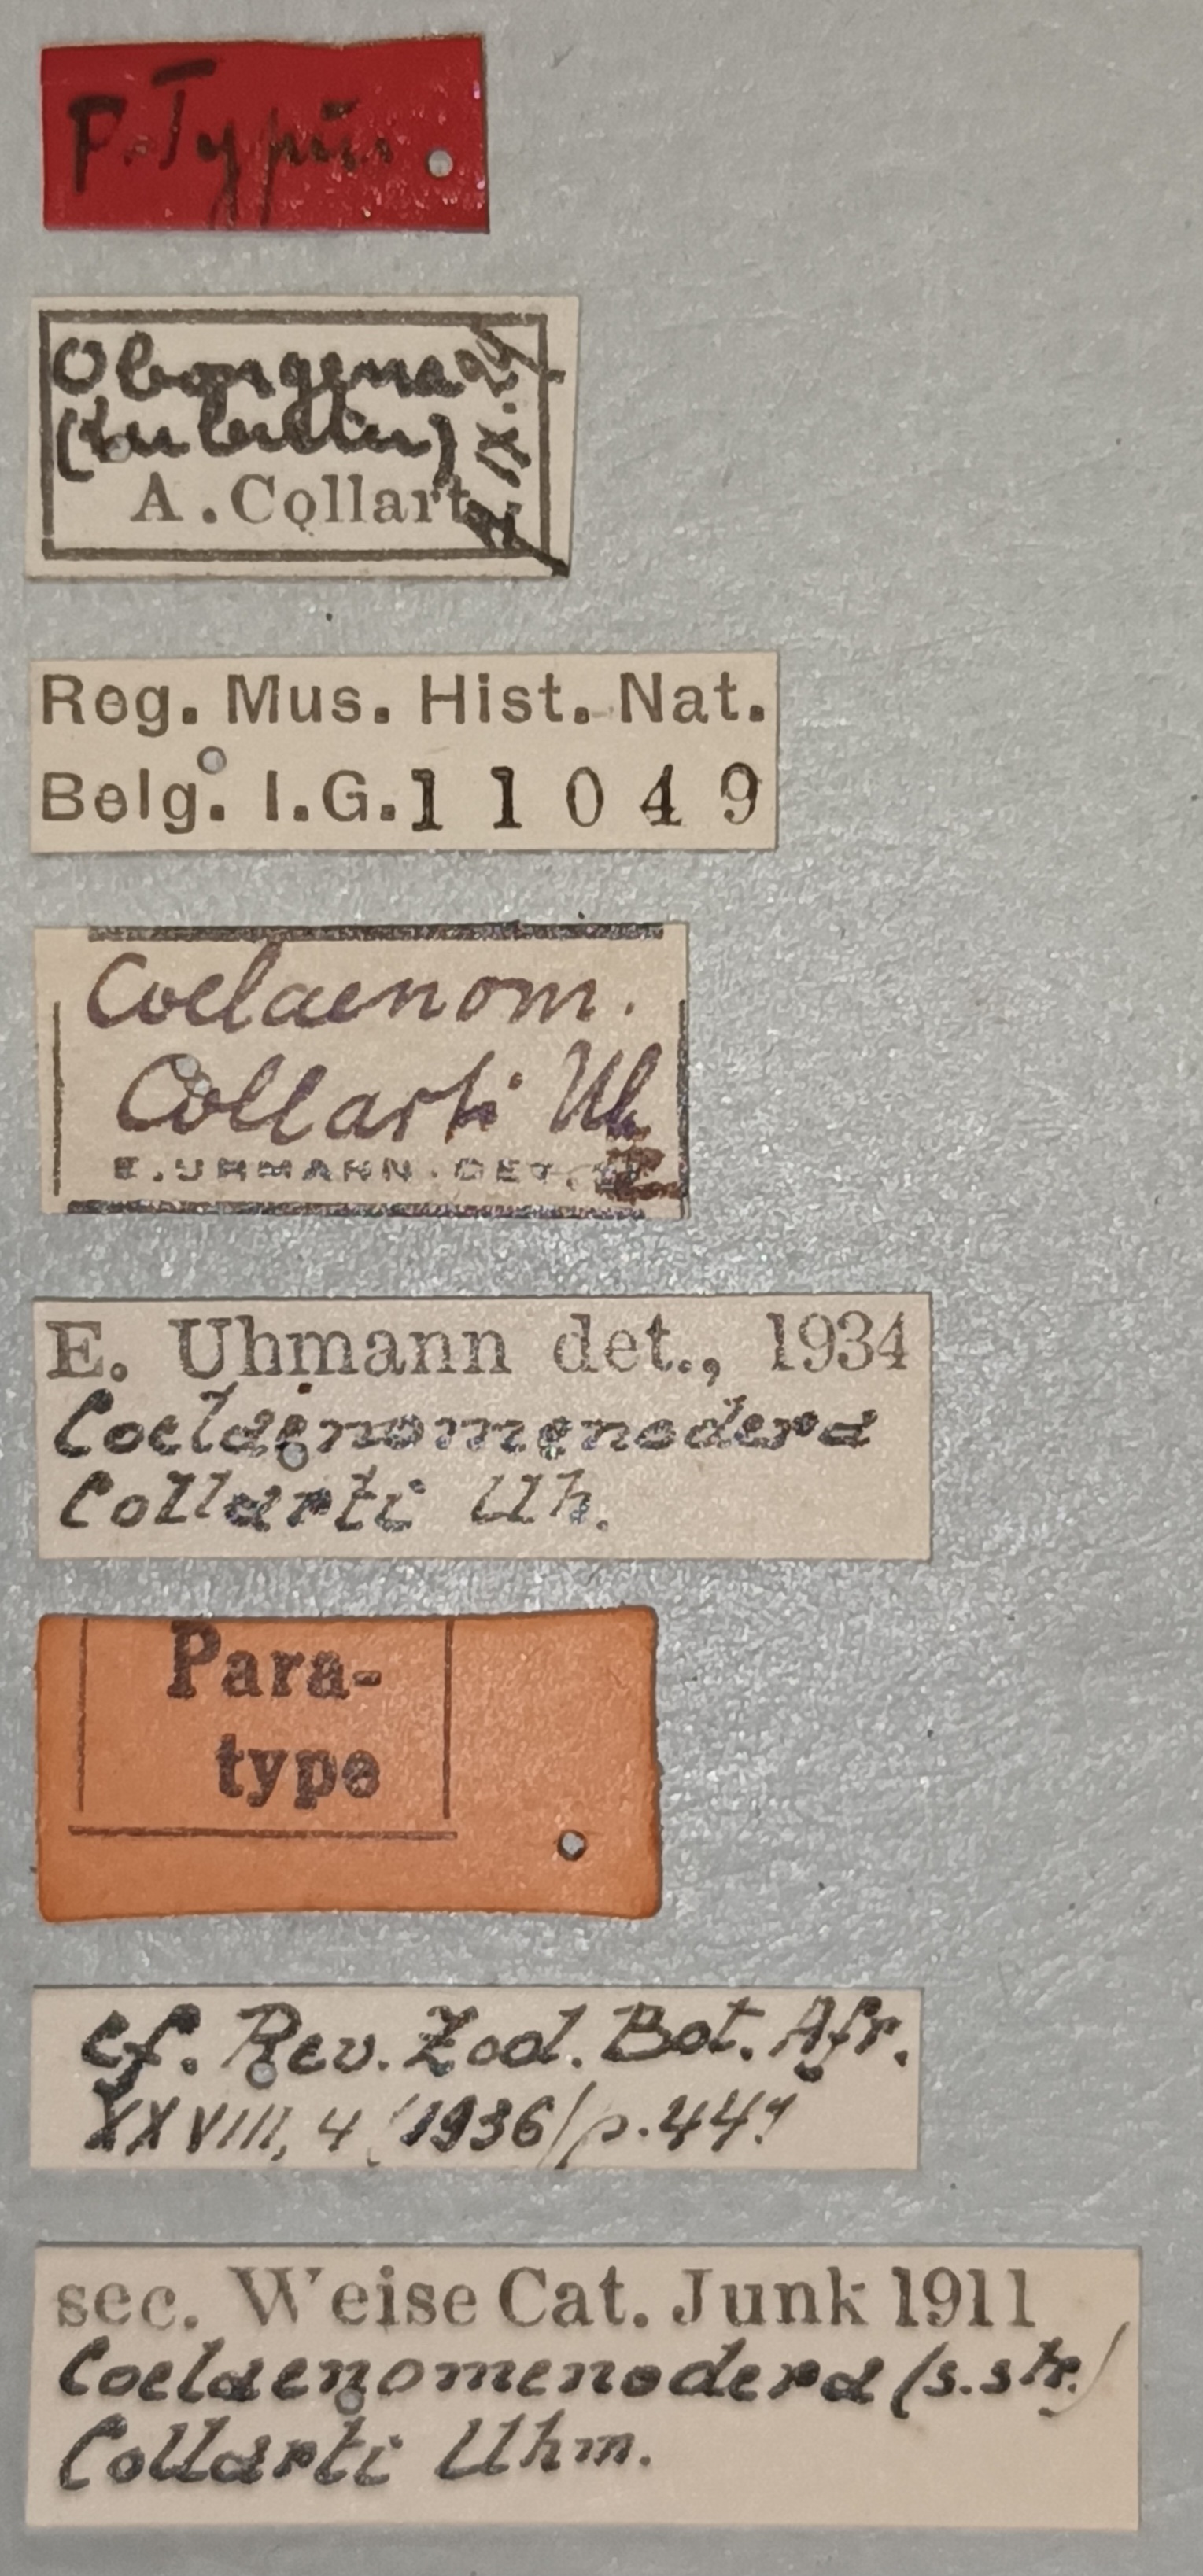 P. Typus.
Obongena
A. Collart
Reg. Mus. Hist. Nat.
Belg. I.G. 11049
Coelaenom.
Collarti Uh
E. UHMANN. DET.
E. Uhmann det., 1934
Coelaenomenodera
Collarti Uh.
Para-
type
cf. Rev. Zool. Bot. Afr.
XXVIII, 4 (1936) p. 449
sec. Weise Cat. Junk 1911
Coelaenomenodera (s. str.)
Collarti Uhm.